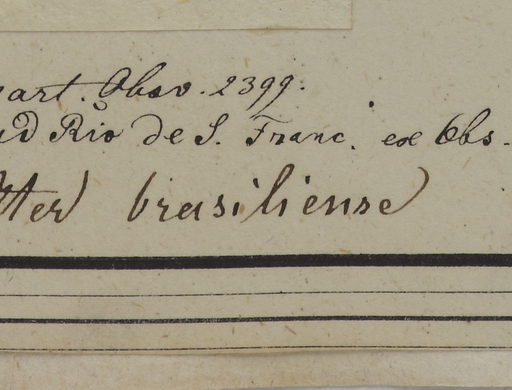 art. Obsv. 2399.
ad Rio de S. Franc. ex Obs.
brasiliense